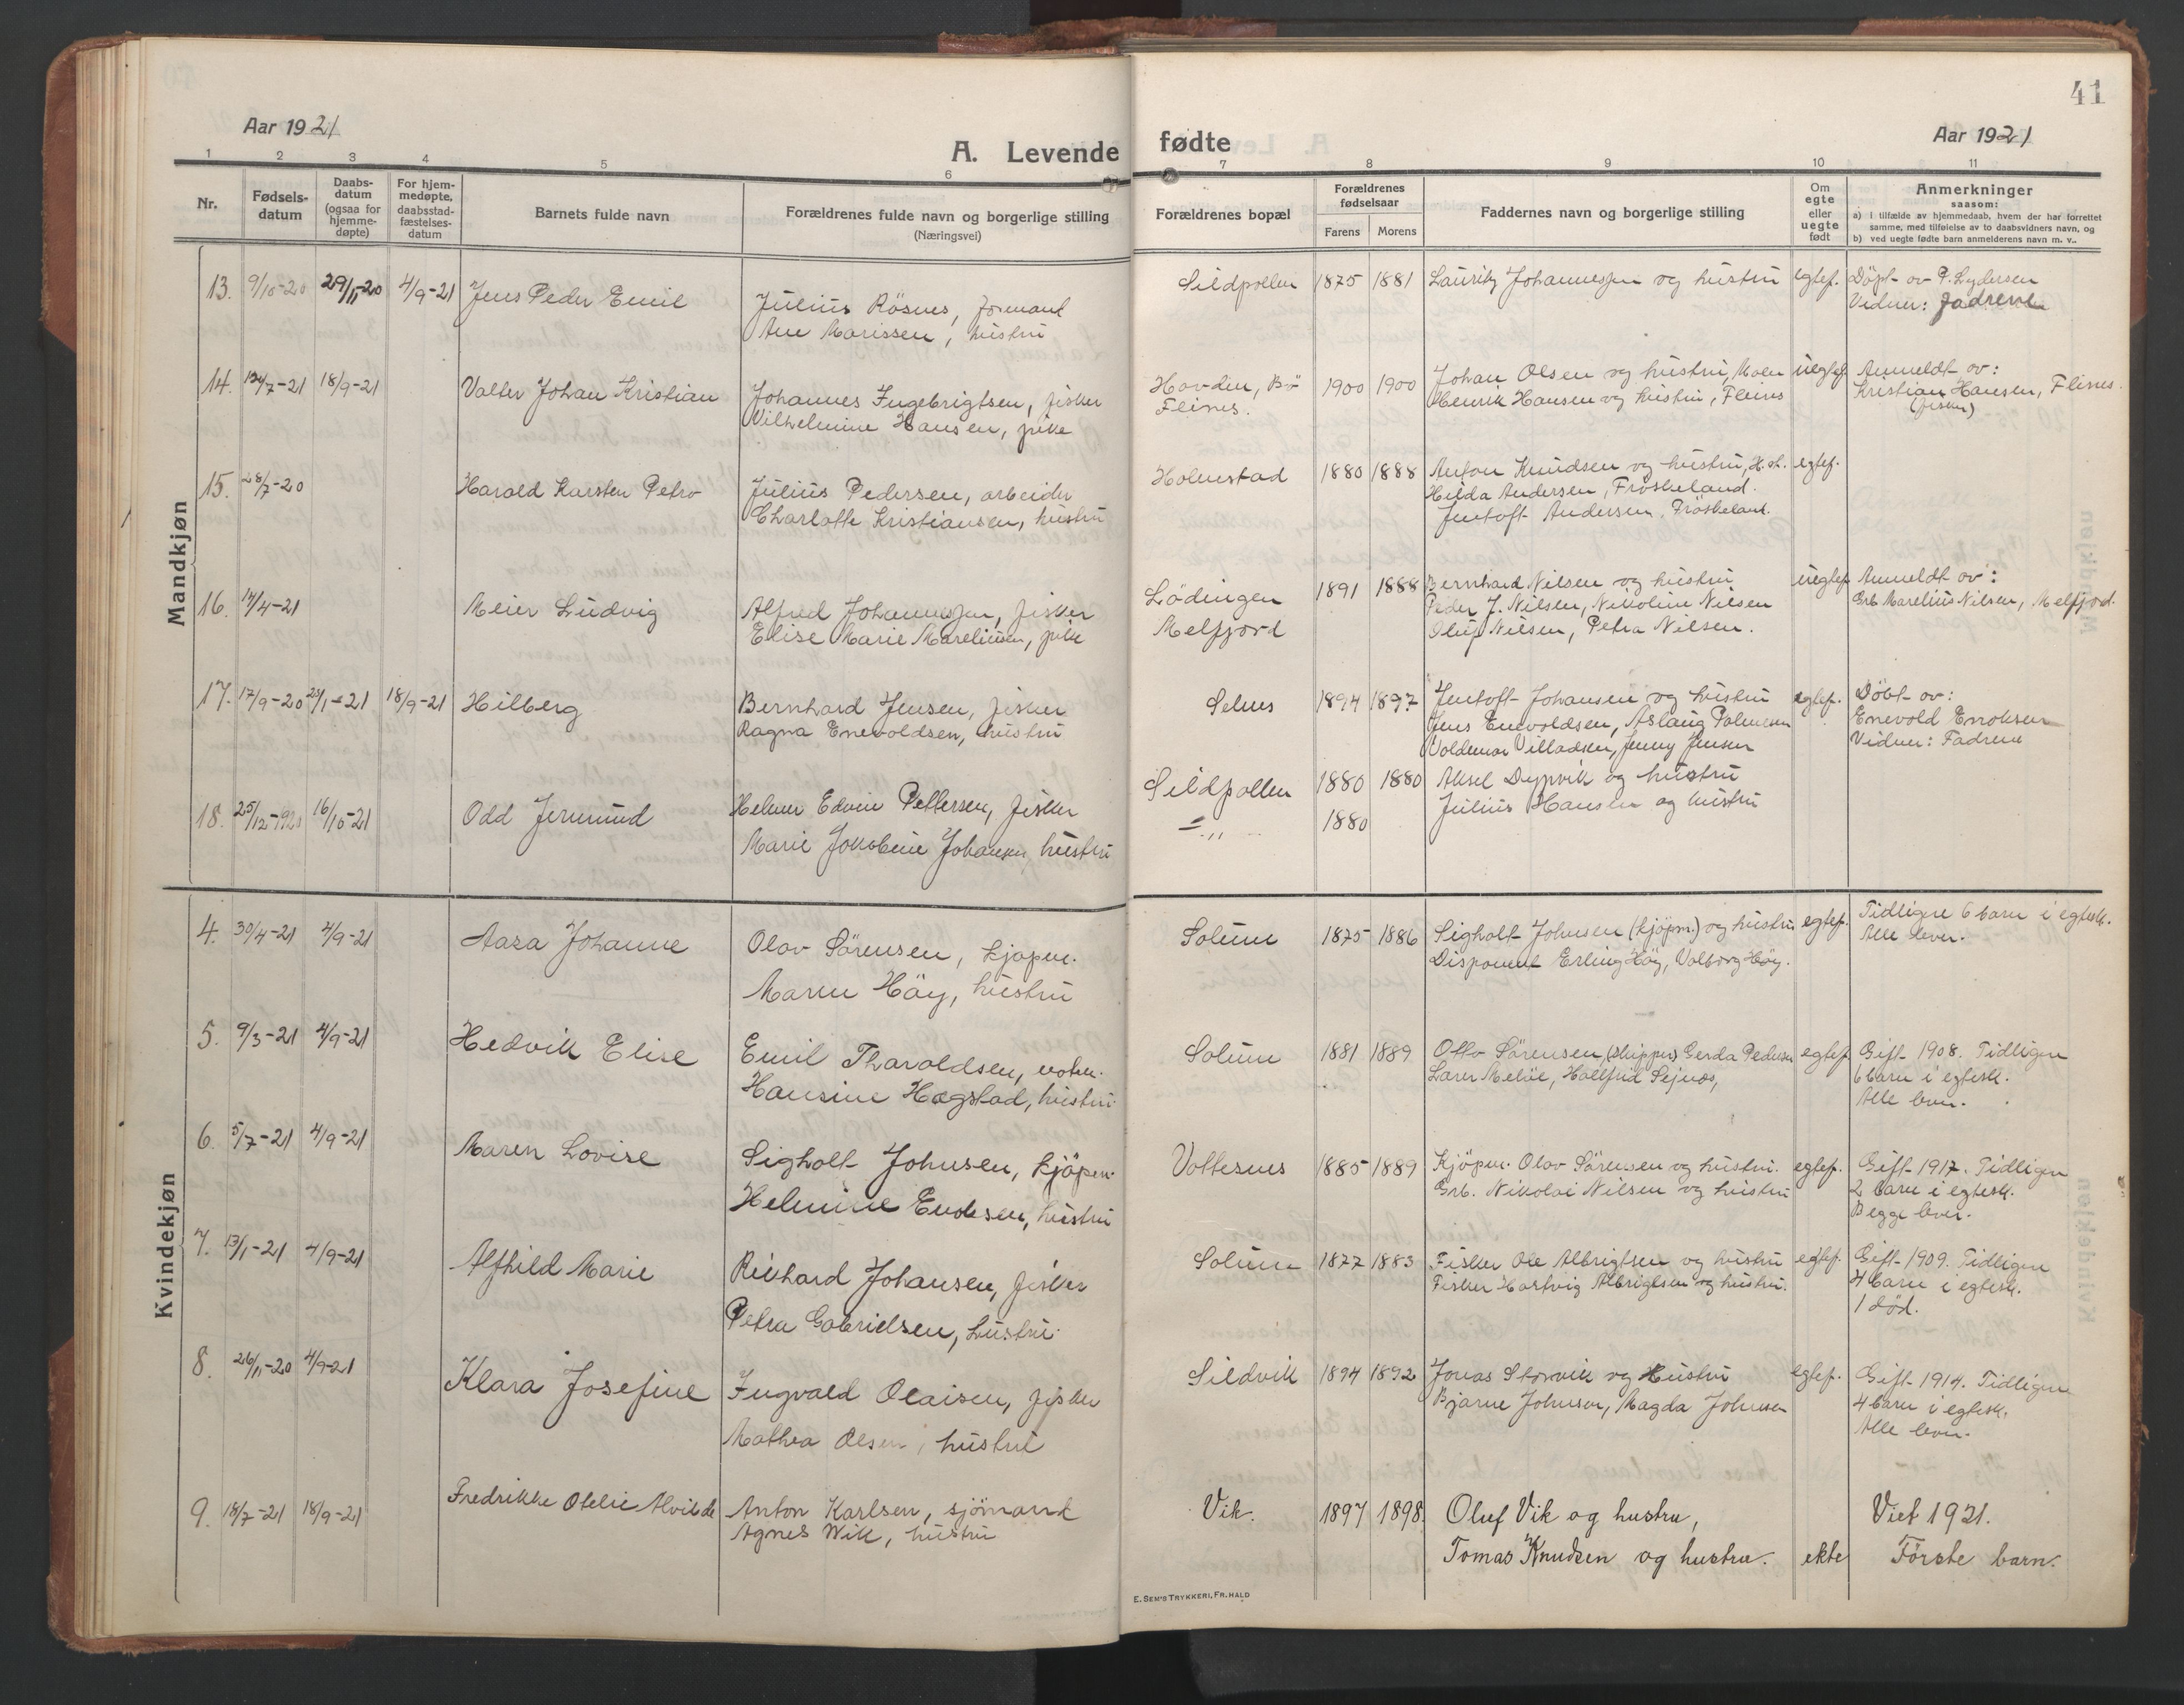 41
Aar 1921
A. Levende
fødte
Aar 1921
1 2 3 4 5 6 7 8 9 10 11
Nr.
Fødsels-
datum
Daabs-
datum
(ogsaa for
hjemme-
døpte)
For hjem-
medøpte,
daabsstad-
fæstelses-
datum
Barnets fulde navn
Forældrenes fulde navn og borgerlige stilling
(Næringsvei)
Forældrenes bopæl
Forældrenes
fødselsaar
Farens Morens
Faddernes navn og borgerlige stilling
Om
egte
eller
uegte
født
Anmerkninger
saasom:
a) i tilfælde av hjemmedaab, hvem der har forrettet
samme, med tilføielse av to daabsvidners navn, og
b) ved uegte fødte barn anmelderens navn m. v..
Mandkjøn
13. 9/10-20 29/11-20 4/9-21 Jens Peder Emil
Julius Rösnes, formand
Ane Marissen, hustru
Sildpollen 1875 1881 Lauritz Johannessen og hustru egtef.
Döpt av P. Lydersen
Vidner: Fadrene
14. 18/9-21 Valter Johan Kristian
Johannes Ingebrigtsen, fisker
Vilhelmine Hansen, pike
Hovden, Bö
Flines.
1900 1900
Johan Olsen og hustru,
Henrik Hansen og hustru, Fleines
uegtef.
Anmeldt av:
Kristian Hansen, Flines.
(fisker)
15. 28/7-20 Harald Karsten Petro
Julius Pedersen, arbeider
Charlotte Kristiansen, hustru
Holmstad 1880 1888
Anton Knudsen og hustru, H.st.
Hilda Andersen, Fröskeland.
Jentoft Andersen, Fröskeland.
egtef.
16. 14/4-21 Meier Ludvig
Alfred Johannessen, fisker
Elise Marie Mareliussen, pike
Lödingen
Melfjord
1891 1888
Bernhard Nilsen og hustru
Peder J. Nilsen, Nikoline Nilsen
Oluf Nilsen, Petra Nilsen.
uegtef.
Anmeldt av:
Grb. Marelius Nilsen, Melfjord.
17. 17/9-20 18/9-21 Hilberg
Bernhard Jensen, fisker
Ragna Enevoldsen, hustru
Selnes 1894 1897
Jentoft Johansen og hustru
Jens Enevoldsen, Aslaug
Voldemar Villadsen, Jenny Jensen
egtef.
Döbt av:
Enevold Enoksen
Vidner: Fadrene
18. 25/12-1920 16/10-21 Odd Jermund
Helmer Edvin Pettersen, fisker
Marie Jokobine Johansen, hustru
Sildpollen 1880 1880
-„- 1880
Aksel Dypvik og hustru
Julius Hansen og hustru
Kvindekjøn
4. 30/4-21 4/9-21 Aasa Johanne
Olav Sörensen, kjøpm.
Maren Höy, hustru
Solum 1875 1886
Sigholt Johnsen (kjöpm.) og hustru
Disponent Erling Höy, Valborg Höy.
egtef.
Tidligere 6 barn i egtesk.
Alle lever.
5. 9/3-21 4/9-21 Hedvik Elise
Emil Tharaldsen,
Hansine Hægstad, hustru
Solum 1881 1889
Otto Sörensen, (skipper) Gerda Pedersen
Meløe, Halfrid
egtef.
Gift 1908. Tidligere
6 barn i egtesk.
Alle lever.
6. 5/7-21 4/9-21 Maren Lovise
Sigholt Johnsen, kjöpm.
Helmine Endresen, hustru
Vottesnes 1885 1889
Kjöpm. Olav Sörensen og hustru.
Grb. Nikolai Nilsen og hustru
egtef.
Gift 1917. Tidligere
2 barn i egtesk.
Begge lever.
7. 13/1-21 4/9-21 Alfhild Marie
Rikhard Johansen, fisker
Petra Gabrielsen, hustru.
Solum 1877 1883
Fisker Ole Albrigtsen og hustru
Fisker Hartvig Albrigtsen og hustru.
egtef.
Gift 1909. Tidligere
4 barn i egtesk.
1 död.
8. 26/11-20 4/9-21 Klara Josefine
Ingvald Olaisen, fisker
Mathea Olsen, hustru
Sildvik 1894 1892
Jonas Storvik og Hustru
Bjarne Johnsen, Magda Johnsen
egtef.
Gift 1914. Tidligere
4 barn i egtesk.
Alle lever.
9. 18/7-21 18/9-21 Fredrikke Otelie Alvilde
Anton Karlsen, sjömand
Agnes Wik, hustru
Vik. 1897 1898.
Oluf Vik og hustru,
Tomas Knudsen og hustru.
ekte
Viet 1921.
Förste barn.
E. SEM'S TRYKKERI, FR.HALD